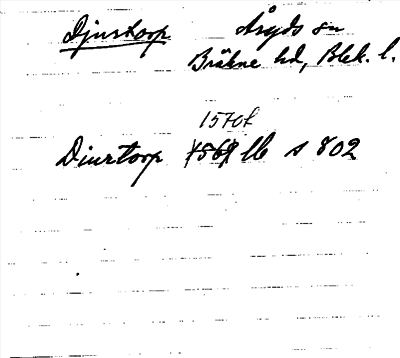 Djurstorp Åryds sn
Bräkne hd, Blek. l.
1570f
Diurtorp 1569 Ub s 802